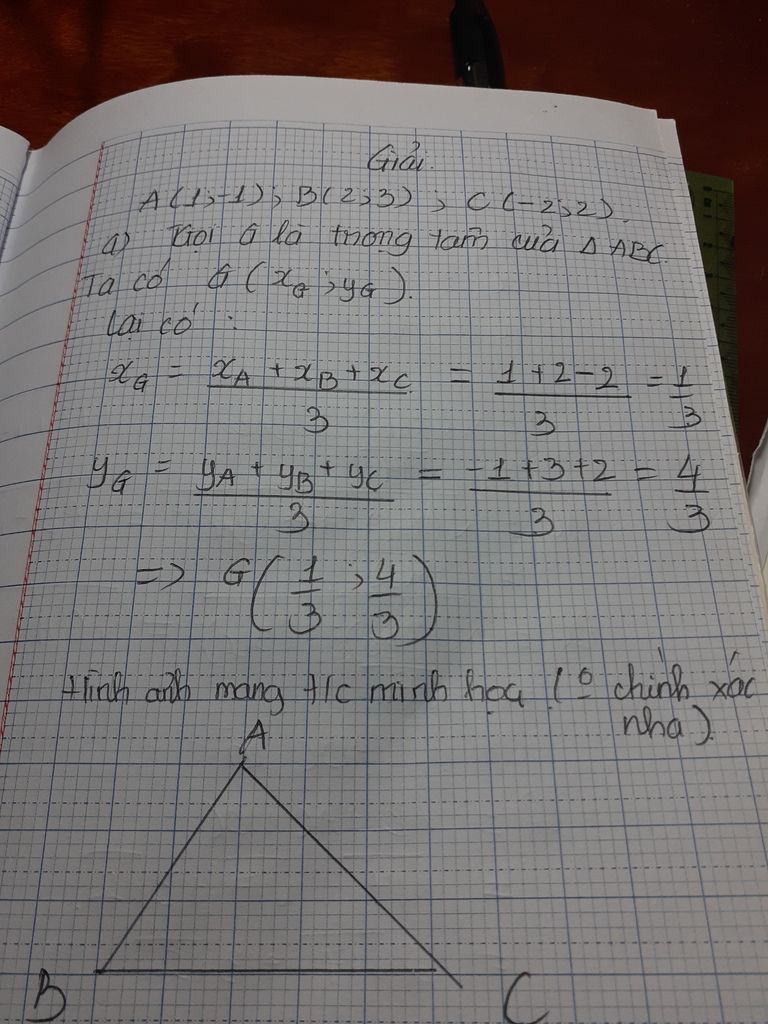 Giải.
A(1;-1); B(2;3); C(-2;2).
a) Gọi G là trọng tâm của Δ ABC.
Ta có G (x_G ; y_G).
Lại có :
x_G = (x_A + x_B + x_C)/3 = (1+2-2)/3 = 1/3
y_G = (y_A + y_B + y_C)/3 = (-1+3+2)/3 = 4/3
=> G(1/3 ; 4/3)
Hình ảnh mang t/c minh họa (º chính xác
nha).
A
B C